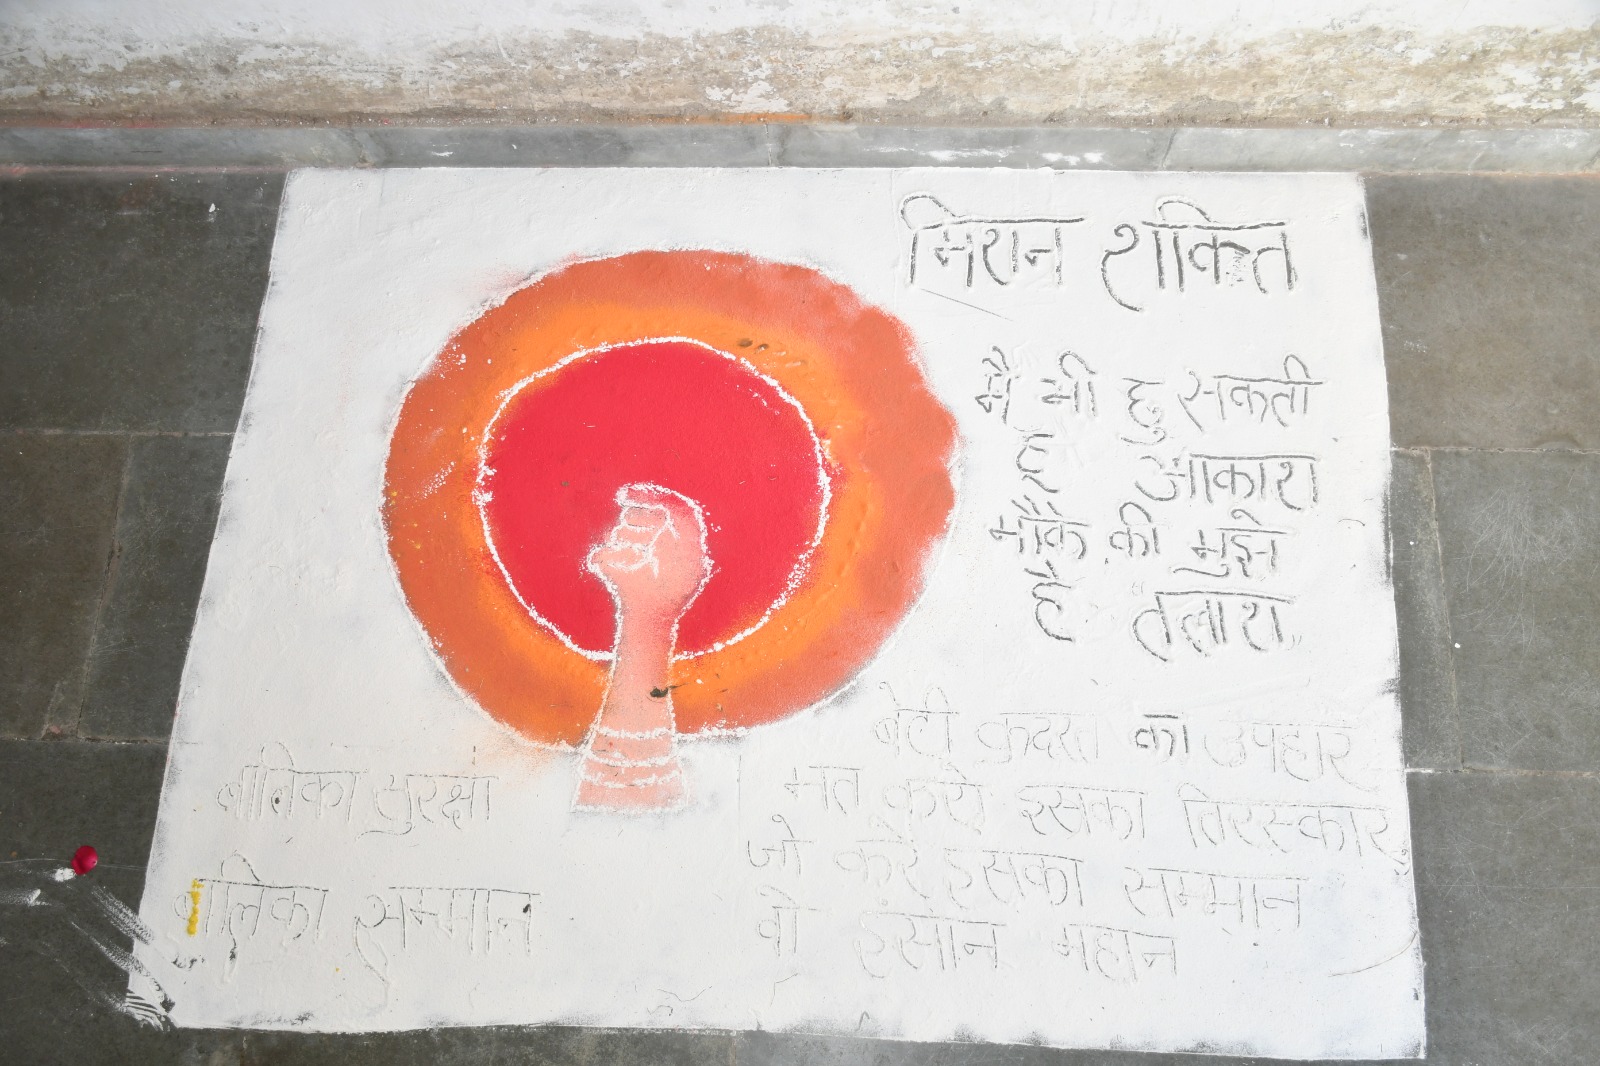 मिशन शक्ति
मै भी छु सकती
हूँ आकाश
मौके की मुझे
है तलाश
बेटी कुदरत का उपहार
मत करो इसका तिरस्कार
जो करे इसका सम्मान
वो इंसान महान
बालिका सुरक्षा
बालिका सम्मान